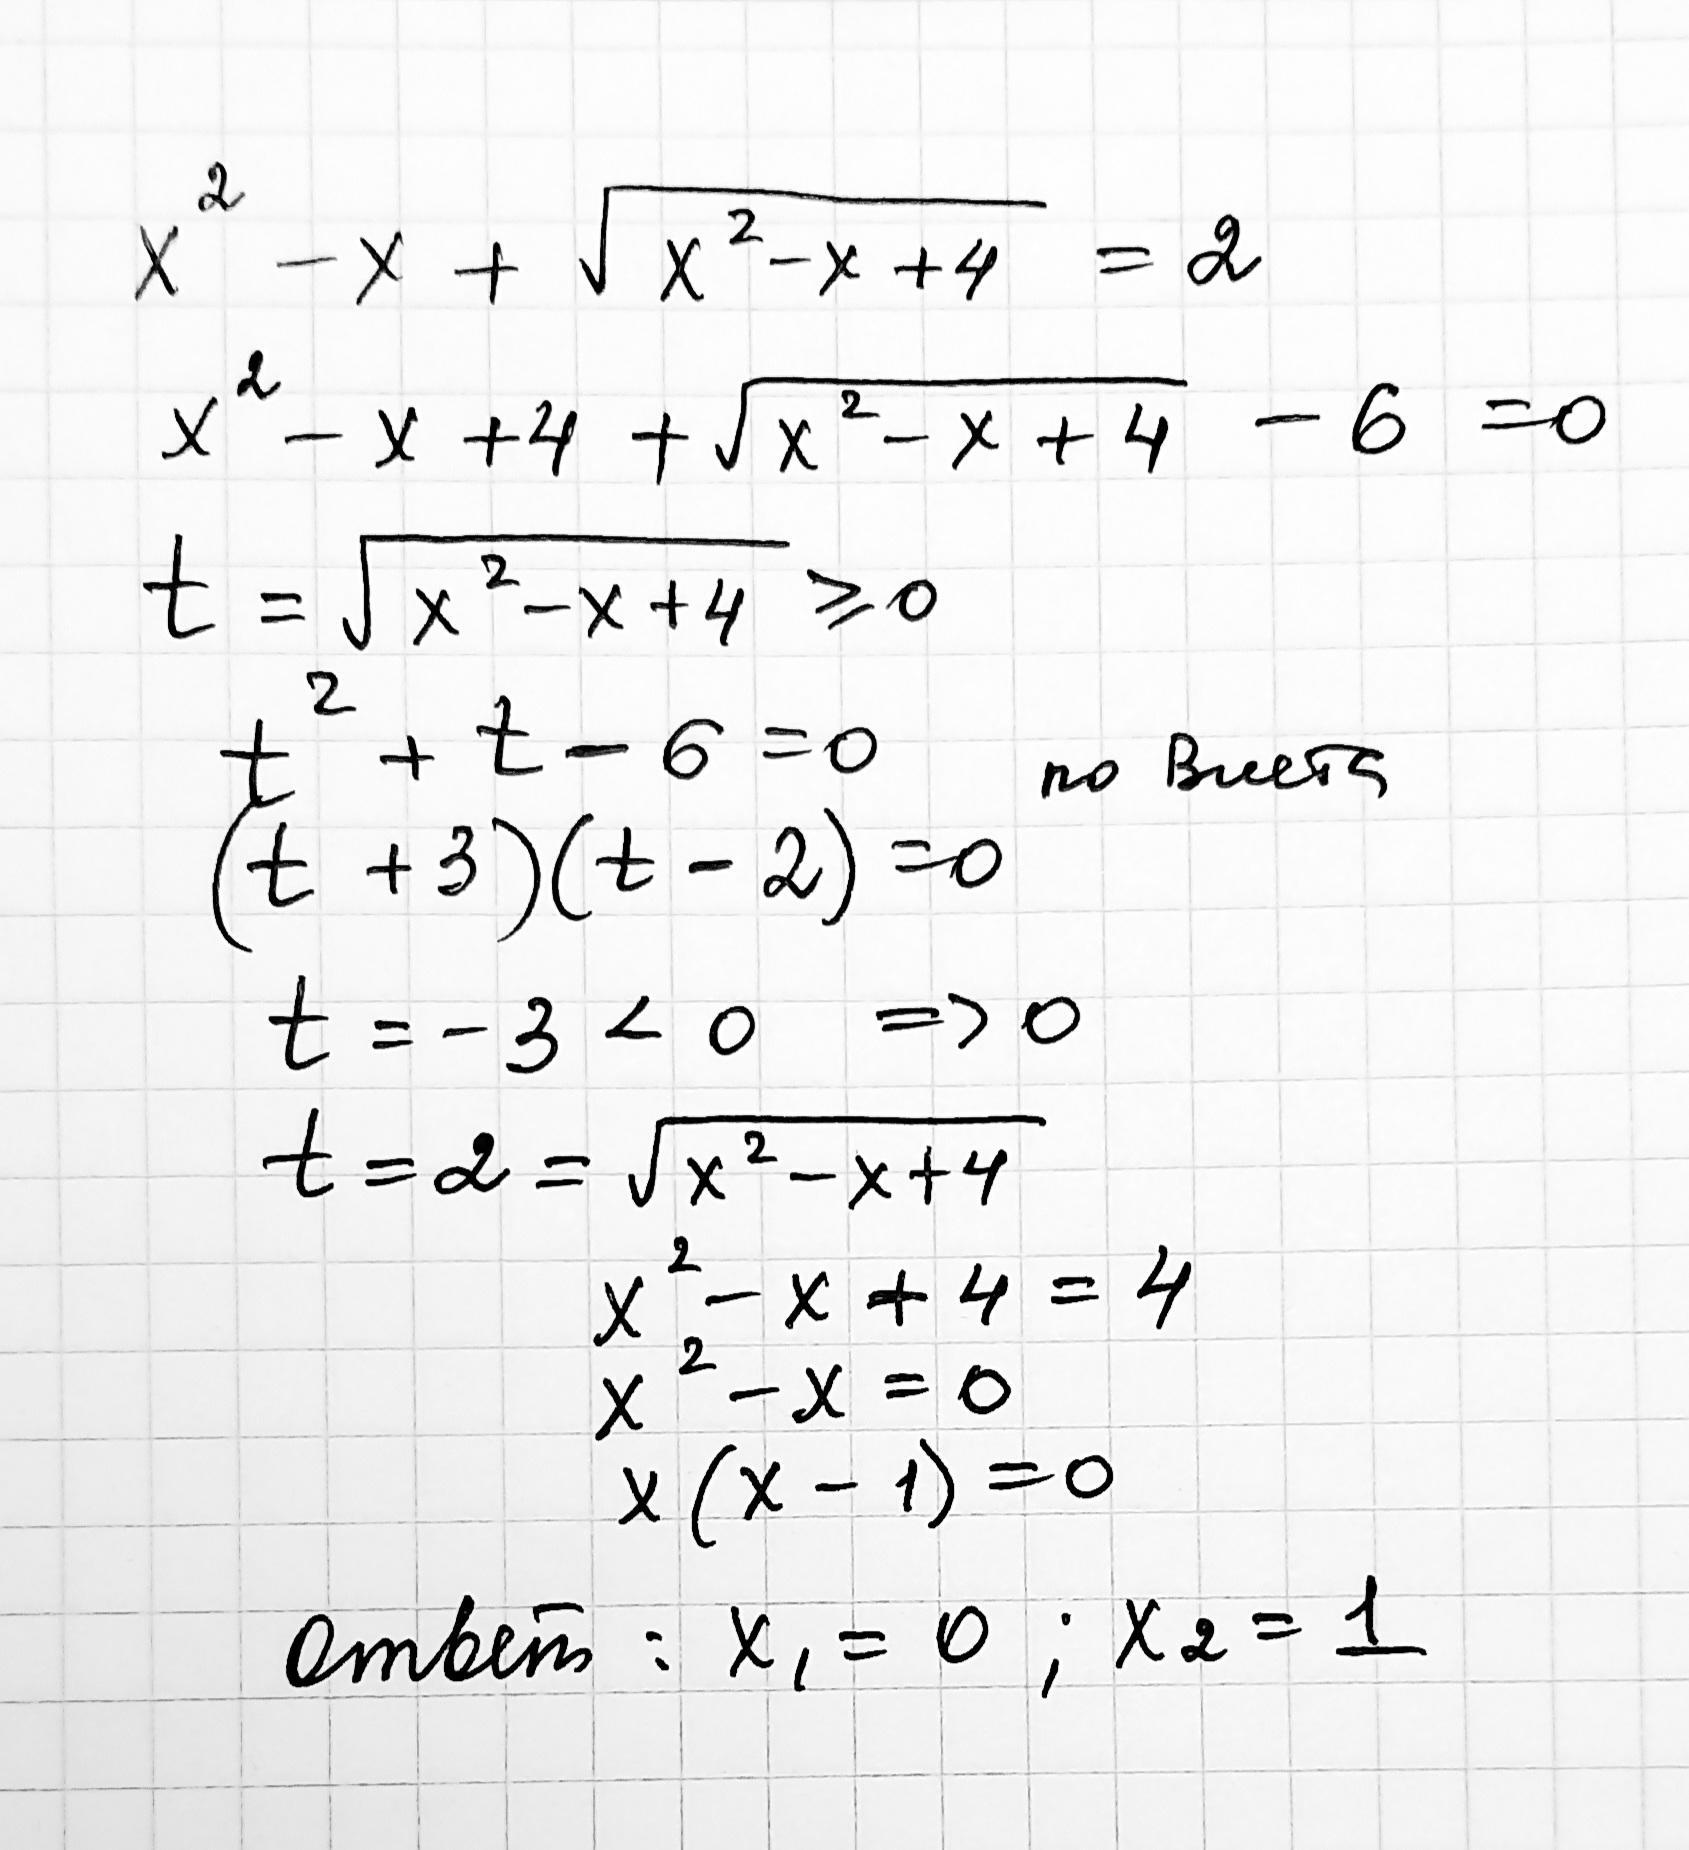 x² - x + √(x² - x + 4) = 2
x² - x + 4 + √(x² - x + 4) - 6 = 0
t = √(x² - x + 4) ⩾ 0
t² + t - 6 = 0 по Виета
(t + 3)(t - 2) = 0
t = -3 < 0 => 0
t = 2 = √(x² - x + 4)
x² - x + 4 = 4
x² - x = 0
x(x - 1) = 0
Ответ: x₁ = 0 ; x₂ = 1